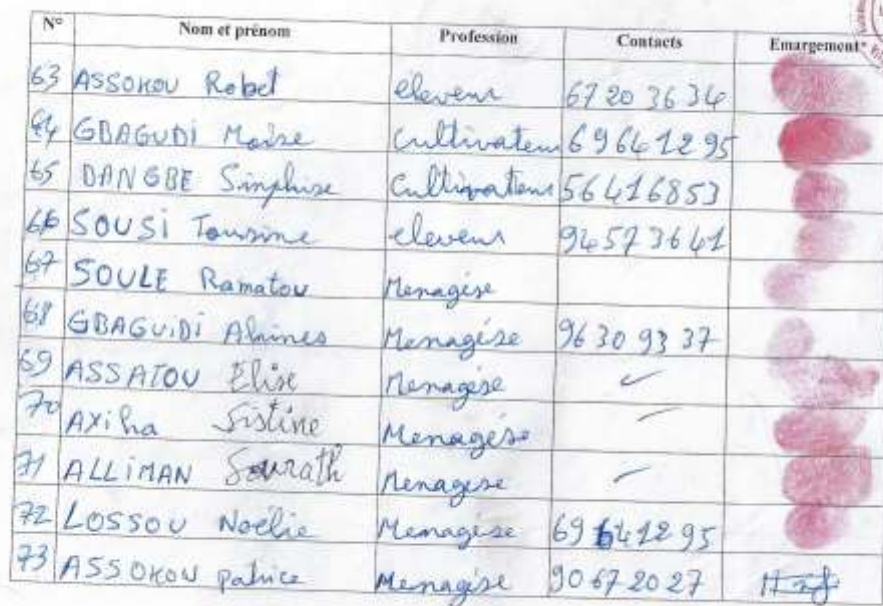 N° Nom et prénom Profession Contacts Emargement
63 ASSOKOU Robet eleveur 67 20 36 34
64 GBAGUDI Moise Cultivateur 69 64 12 95
65 DANGBE Sinphise Cultivateur 56 41 68 53
66 SOUSI Tousine eleveur 94 57 36 41
67 SOULE Ramatou Menagése
68 GBAGUIDI Alaines Menagése 96 30 93 37
69 ASSATOU Elise Menagése
70 AXiha Sistine Menagése
71 ALLIMAN Sourath Menagése
72 LOSSOU Noélie Menagése 69 64 12 95
73 ASSOKOU patrice Menagése 90 67 20 27